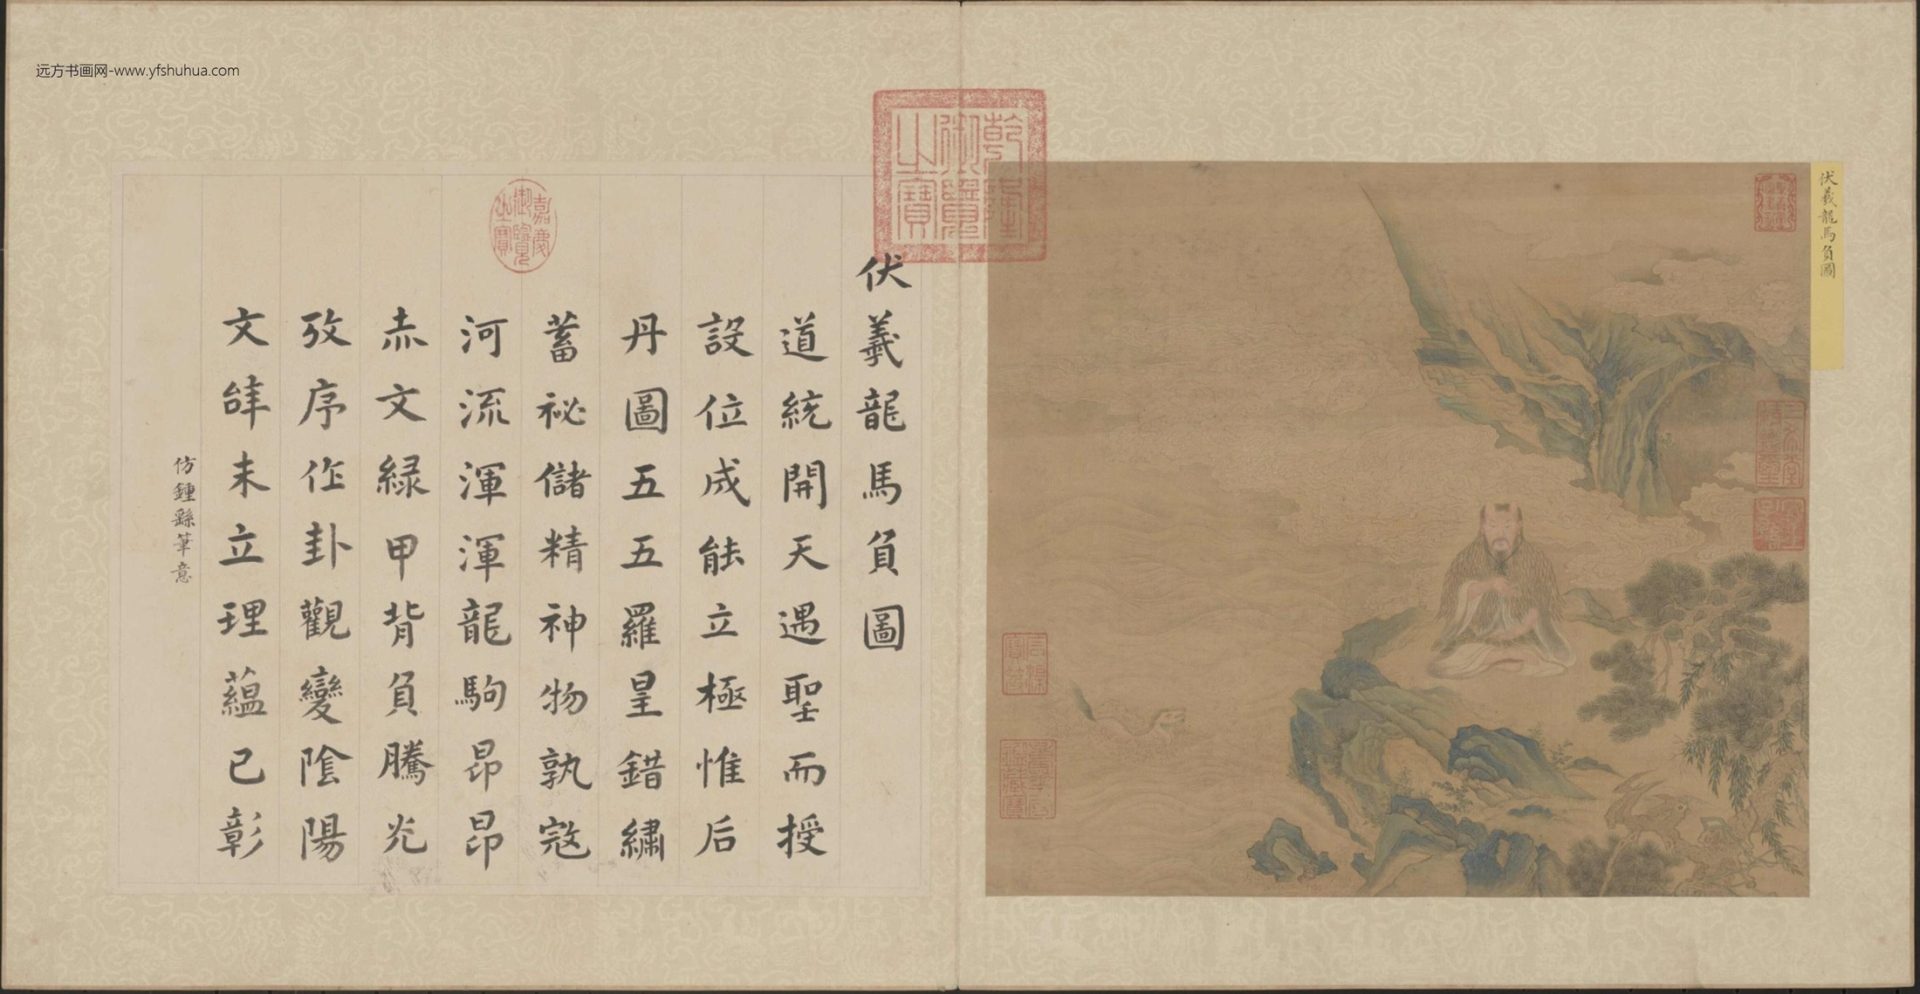 远方书画网-www.yfshuhua.com
伏羲龍馬負圖
乾隆御覽之寶
嘉慶御覽之寶
伏羲龍馬負圖
道統開天遇聖而授
設位成能立極惟后
丹圖五五羅皇錯繡
蓄祕儲精神物孰寇
河流渾渾龍駒昂昂
赤文綠甲背負騰光
攷序作卦觀變陰陽
文薛未立理蘊已彰
仿鍾繇筆意